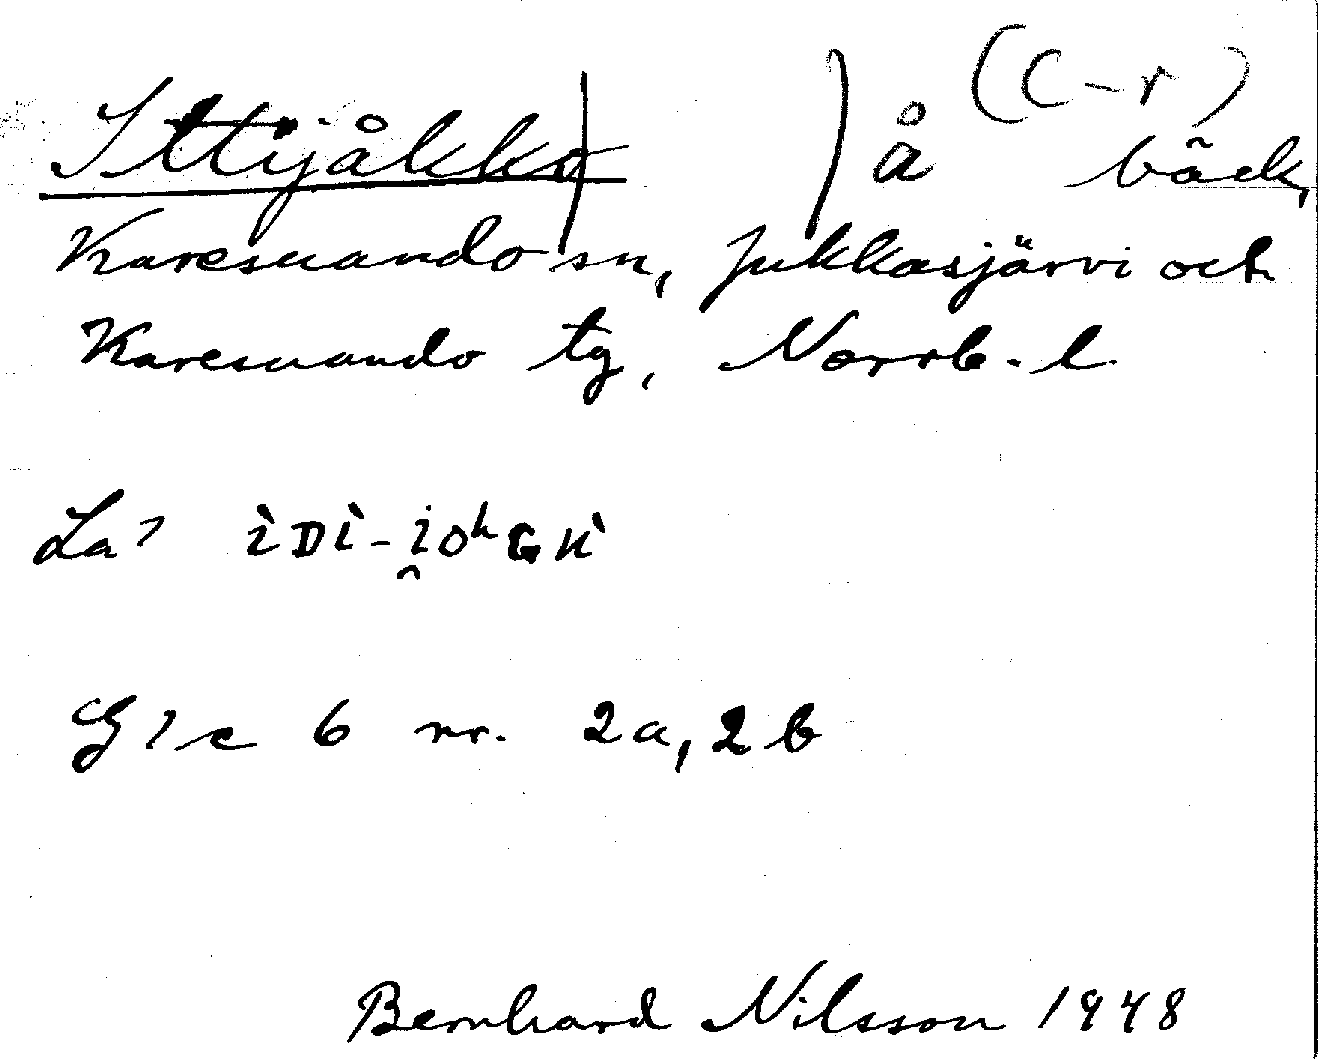 Ittijåkkå å (C-r) bäck,
Karesuando sn, Jukkasjärvi och
Karesuando tg, Norrb. l.
La?
G?c 6 nr. 2a, 2b
Bernhard Nilsson 1948